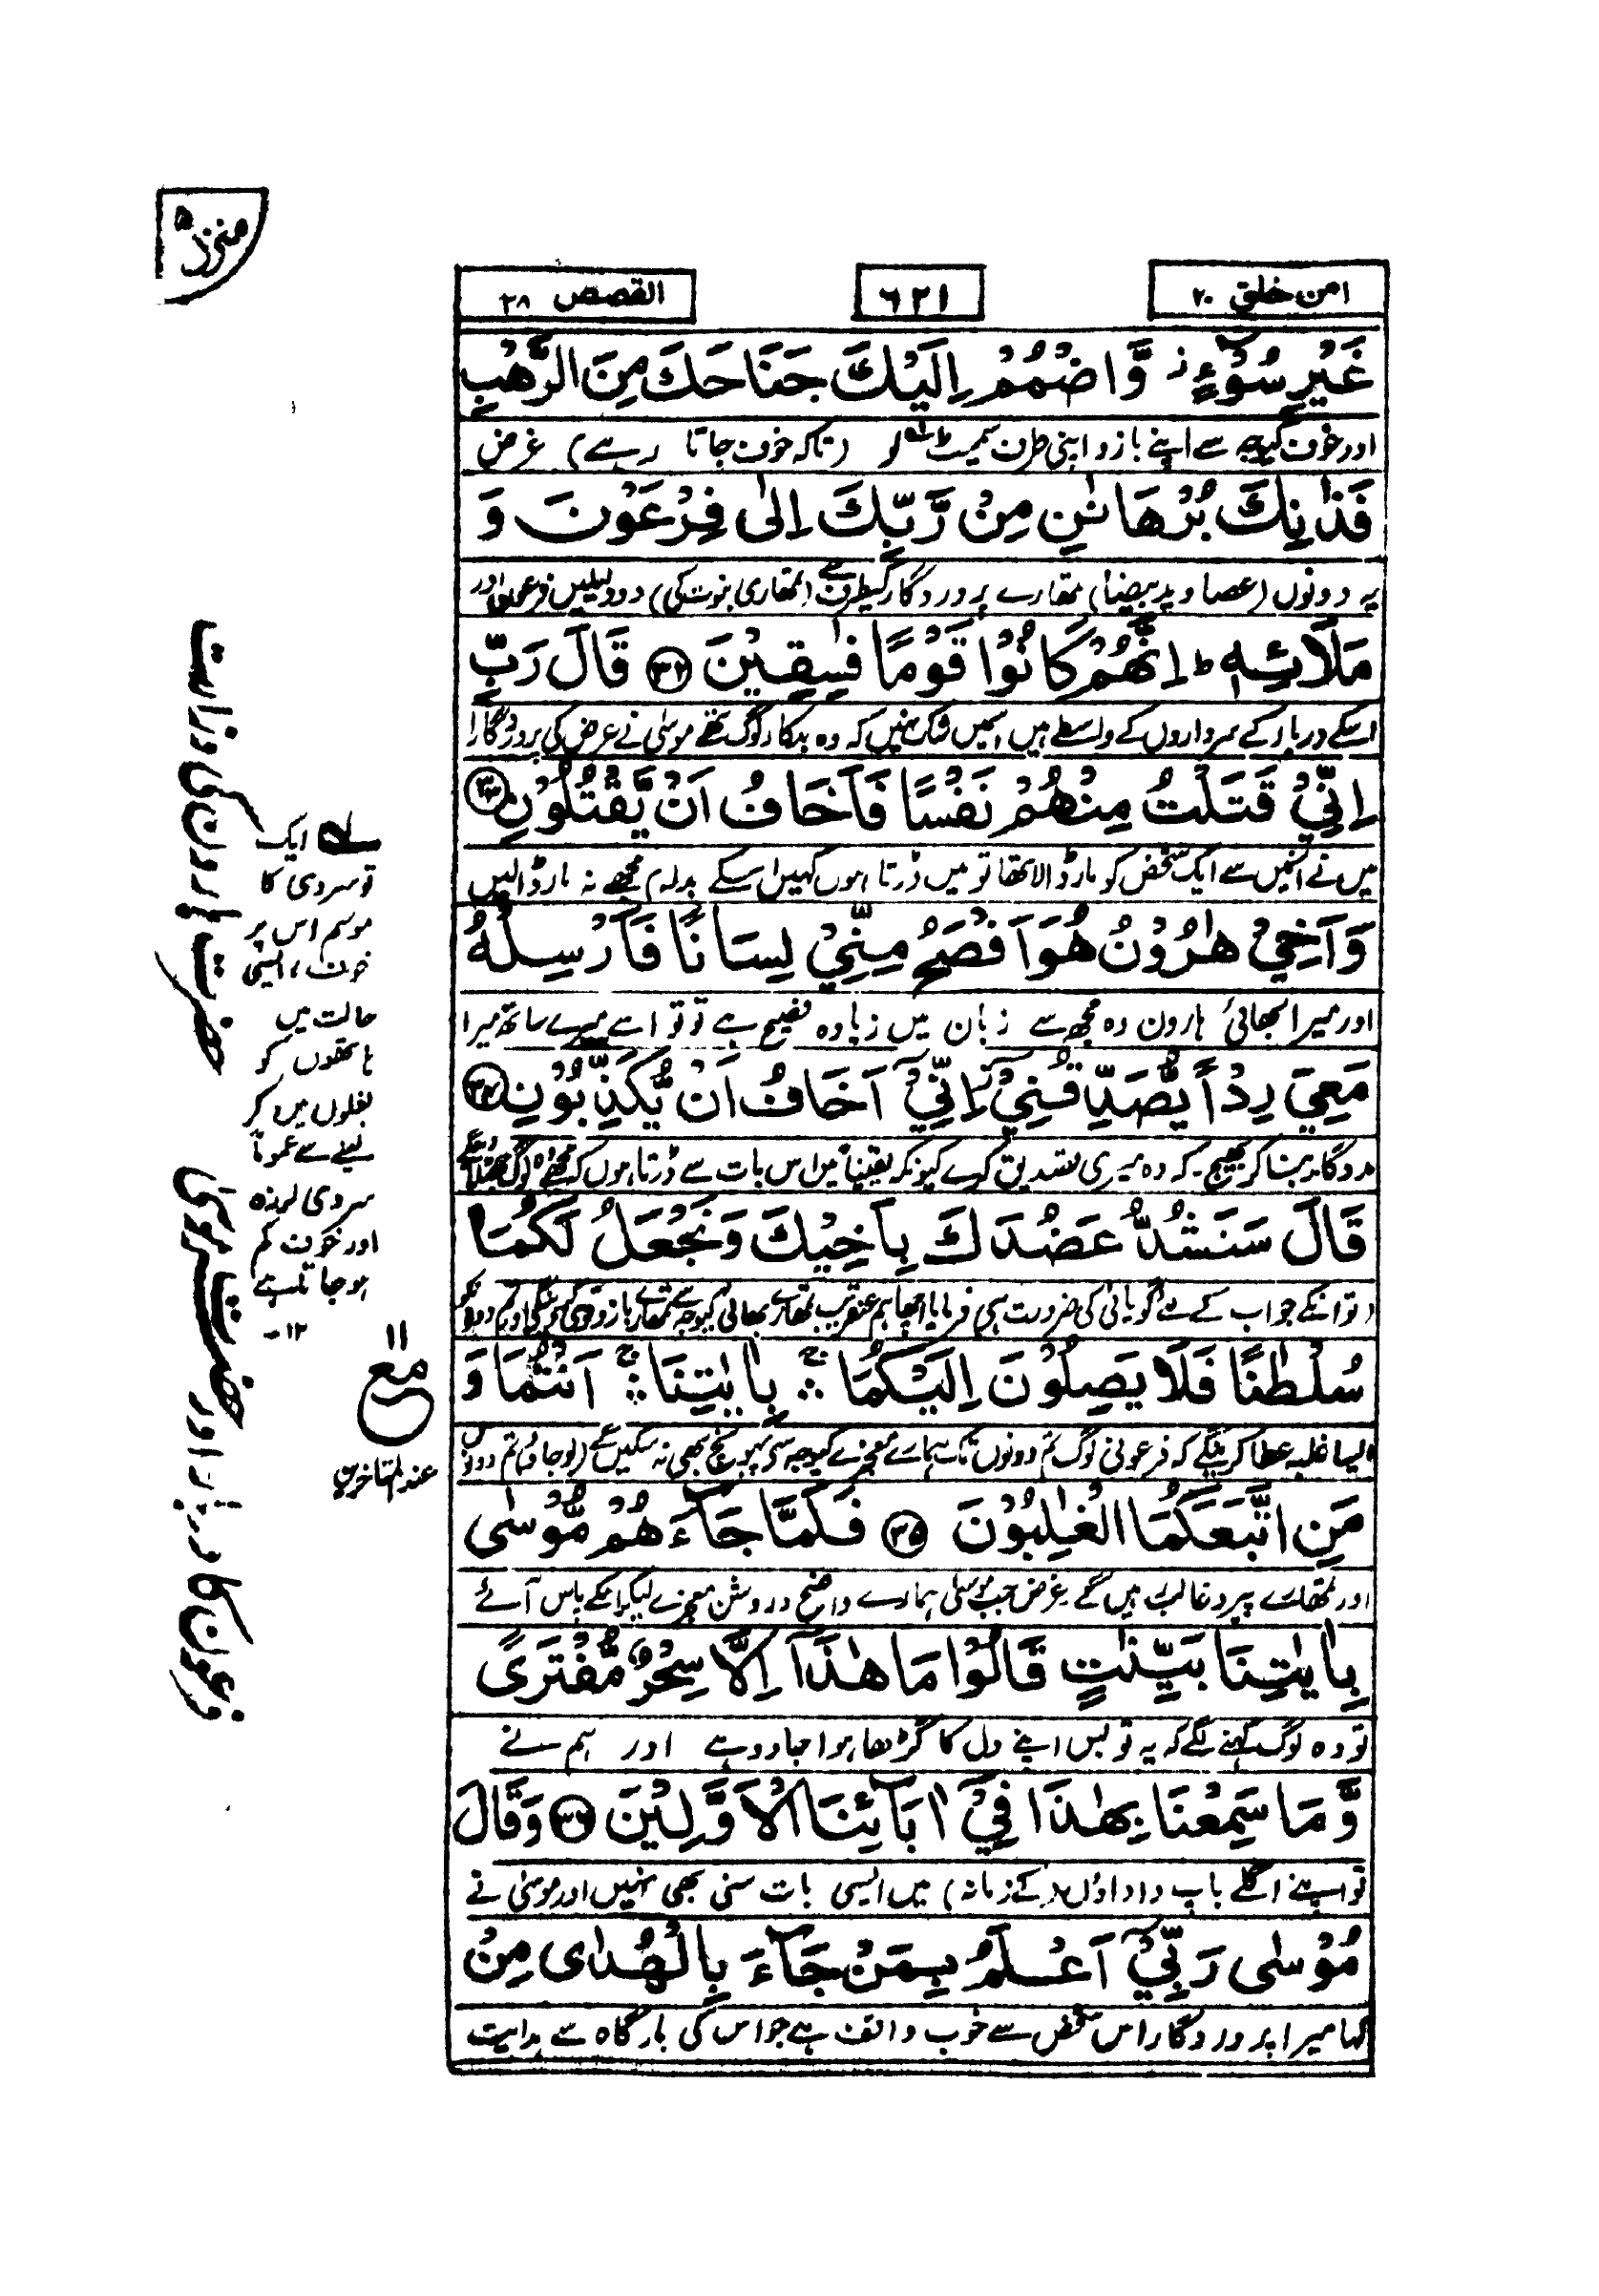 منزل ۵
امن خلق ۲۰
۶۲۱
القصص ۲۸
غَيْرِ سُوْٓءٍ ز وَّاضْمُمْ اِلَيْكَ جَنَاحَكَ مِنَ الرَّهْبِ
اور خوف کیوجہ سے اپنے بازو اپنی طرف سمیٹ لو (تاکہ خوف جاتا رہے) غرض
فَذٰنِكَ بُرْهَانٰنِ مِنْ رَّبِّكَ اِلٰى فِرْعَوْنَ وَ
یہ دونوں (عصا و ید بیضا) تمھارے پروردگار کیطرف سے (تمھاری نبوت کی) دو دلیلیں فرعون اور
مَلَا۟ئِهٖ ؕ اِنَّهُمْ كَانُوْا قَوْمًا فٰسِقِيْنَ ۳۲ قَالَ رَبِّ
اسکے دربار کے سرداروں کے واسطے ہیں اسمیں شک نہیں کہ وہ بدکار لوگ تھے موسیٰ نے عرض کی پروردگارا
اِنِّيْ قَتَلْتُ مِنْهُمْ نَفْسًا فَاَخَافُ اَنْ يَّقْتُلُوْنِ ۳۳
میں نے انمیں سے ایک شخص کو مار ڈالا تھا تو میں ڈرتا ہوں کہیں اسکے بدلہ مجھے نہ مار ڈالیں
وَاَخِيْ هٰرُوْنُ هُوَ اَفْصَحُ مِنِّيْ لِسَانًا فَاَرْسِلْهُ
اور میرا بھائی ہارون وہ مجھ سے زبان میں زیادہ فصیح ہے تو تو اسے میرے ساتھ میرا
مَعِيَ رِدْاً يُّصَدِّقُنِيْٓ اِنِّيْٓ اَخَافُ اَنْ يُّكَذِّبُوْنِ ۳۴
مددگار بنا کر بھیج۔ کہ وہ میری تصدیق کرے کیونکہ یقیناً میں اس بات سے ڈرتا ہوں کہ مجھے وہ لوگ جھٹلا دینگے
قَالَ سَنَشُدُّ عَضُدَكَ بِاَخِيْكَ وَنَجْعَلُ لَكُمَا
(تو انکے جواب کے لئے گویائی کی ضرورت ہی فرمایا اچھا ہم عنقریب تمھارے بھائی کیوجہ سے تمھارے بازو قوی کر دینگے اور تم دونو کو
سُلْطٰنًا فَلَا يَصِلُوْنَ اِلَيْكُمَا ۛۚ بِاٰيٰتِنَا ۛۚ اَنْتُمَا وَ
ایسا غلبہ عطا کرینگے کہ فرعونی لوگ تم دونوں تک ہمارے معجزے کیوجہ سے پہونچ بھی نہ سکیں گے (لو جاؤ) تم دونوں
مَنِ اتَّبَعَكُمَا الْغٰلِبُوْنَ ۳۵ فَلَمَّا جَآءَهُمْ مُّوْسٰى
اور تمھارے پیرو غالب رہیں گے۔ غرض جب موسیٰ ہمارے واضح و روشن معجزے لیکر انکے پاس آئے
بِاٰيٰتِنَا بَيِّنٰتٍ قَالُوْا مَا هٰذَآ اِلَّا سِحْرٌ مُّفْتَرًى
تو وہ لوگ کہنے لگے کہ یہ تو بس اپنے دل کا گڑھا ہوا جادو ہے اور ہم نے
وَّمَا سَمِعْنَا بِهٰذَا فِيْٓ اٰبَآئِنَا الْاَوَّلِيْنَ ۳۶ وَقَالَ
تو اپنے اگلے باپ داداؤں (کے زمانہ) میں ایسی بات سنی بھی نہیں اور موسیٰ نے
مُوْسٰى رَبِّيْٓ اَعْلَمُ بِمَنْ جَآءَ بِالْهُدٰى مِنْ
کہا میرا پروردگار اس شخص سے خوب واقف ہے جو اس کی بارگاہ سے ہدایت
ایک
تو سردی کا
موسم اس پر
خوف، ایسی
حالت میں
ہاتھوں کو
بغلوں میں کر
لینے سے عموماً
سردی لرزہ
اور خوف کم
ہو جاتا ہے
۱۲-
۱۱
مع
عند المتاخرین
حضرت ہارون کی وزارت
حضرت موسیٰ اور دربار فرعون کا